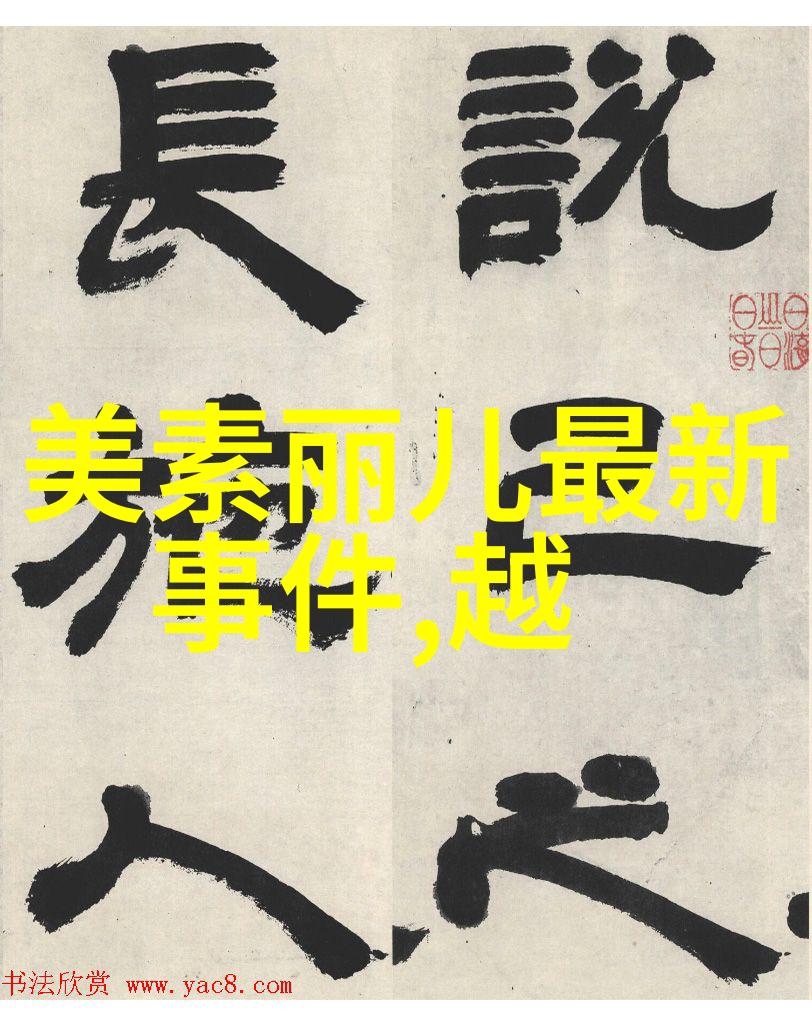 說己之
長施人
美素丽儿最新
事件,越
书法欣赏 www.yac8.com